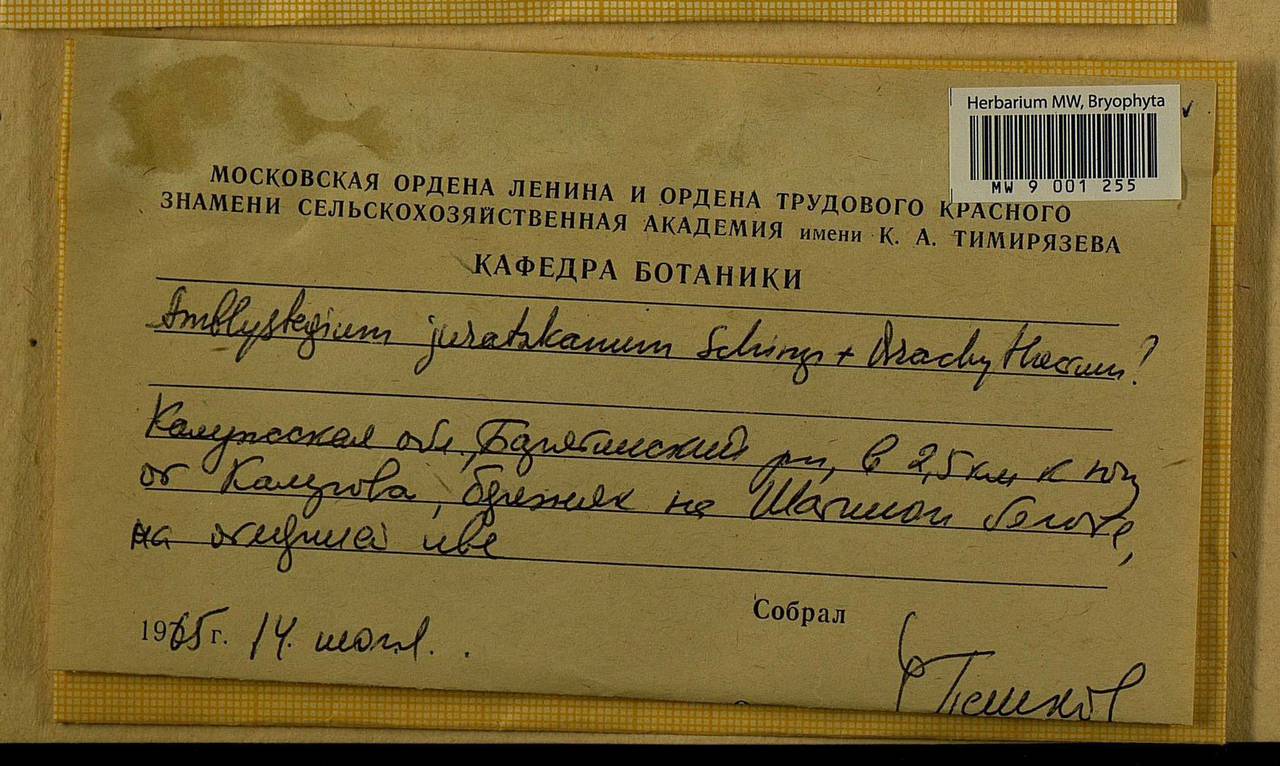 Herbarium MW, Bryophyta
MW 9 001 255
МОСКОВСКАЯ ОРДЕНА ЛЕНИНА И ОРДЕНА ТРУДОВОГО КРАСНОГО
ЗНАМЕНИ СЕЛЬСКОХОЗЯЙСТВЕННАЯ АКАДЕМИЯ имени К. А. ТИМИРЯЗЕВА
КАФЕДРА БОТАНИКИ
Amblystegium juratzkanum Schimp + Brachythecium?
Калужская обл., Барятинский рн, в 2,5 км к югу
от Калугова, березняк на Шатином болоте,
на ольхе
1965 г. 14. июля.
Собрал